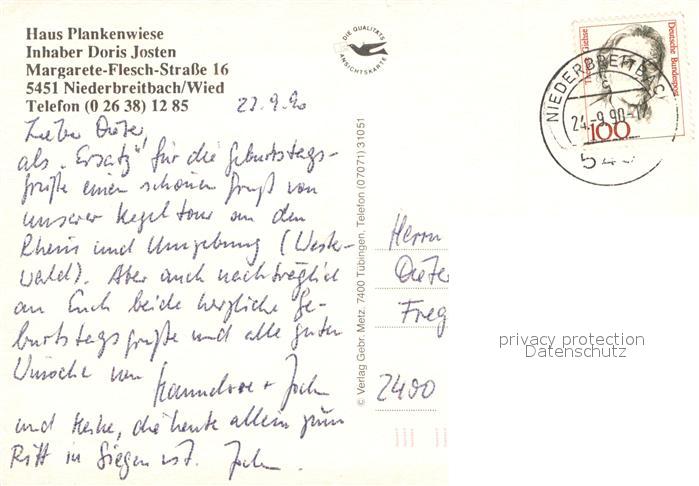 Haus Plankenwiese
Inhaber Doris Josten
Margarete-Flesch-Straße 16
5451 Niederbreitbach/Wied
Telefon (0 26 38) 12 85
DIE QUALITÄTS
ANSICHTSKARTE
Therese Giehse
Deutsche Bundespost
100
NIEDERBREITBACH
c
24.-9.90-
54
22.9.90
Lieber Dieter,
als „Ersatz" für die Geburtstags-
grüße einen schönen Gruß von
unserer Kegeltour an den
Rhein und Umgebung (Wester-
wald). Aber auch nachträglich
an Euch beide herzliche Ge-
burtstagsgrüße und alle guten
Wünsche von
Hannelore + Jochen
und Heike, die heute allein zum
Ritt in Siegen ist. Jochen.
© Verlag Gebr. Metz, 7400 Tübingen, Telefon (07071) 31051
Herrn
Dieter
Freg
2400
privacy protection
Datenschutz